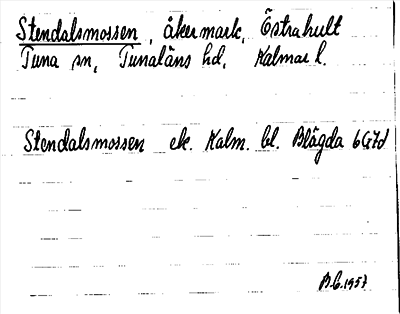 Stendalsmossen, åkermark, Östrahult
Tuna sn, Tunaläns hd, Kalmar l.
Stendalsmossen ek. Kalm. bl. Blägda 6G7d
B.G. 1957